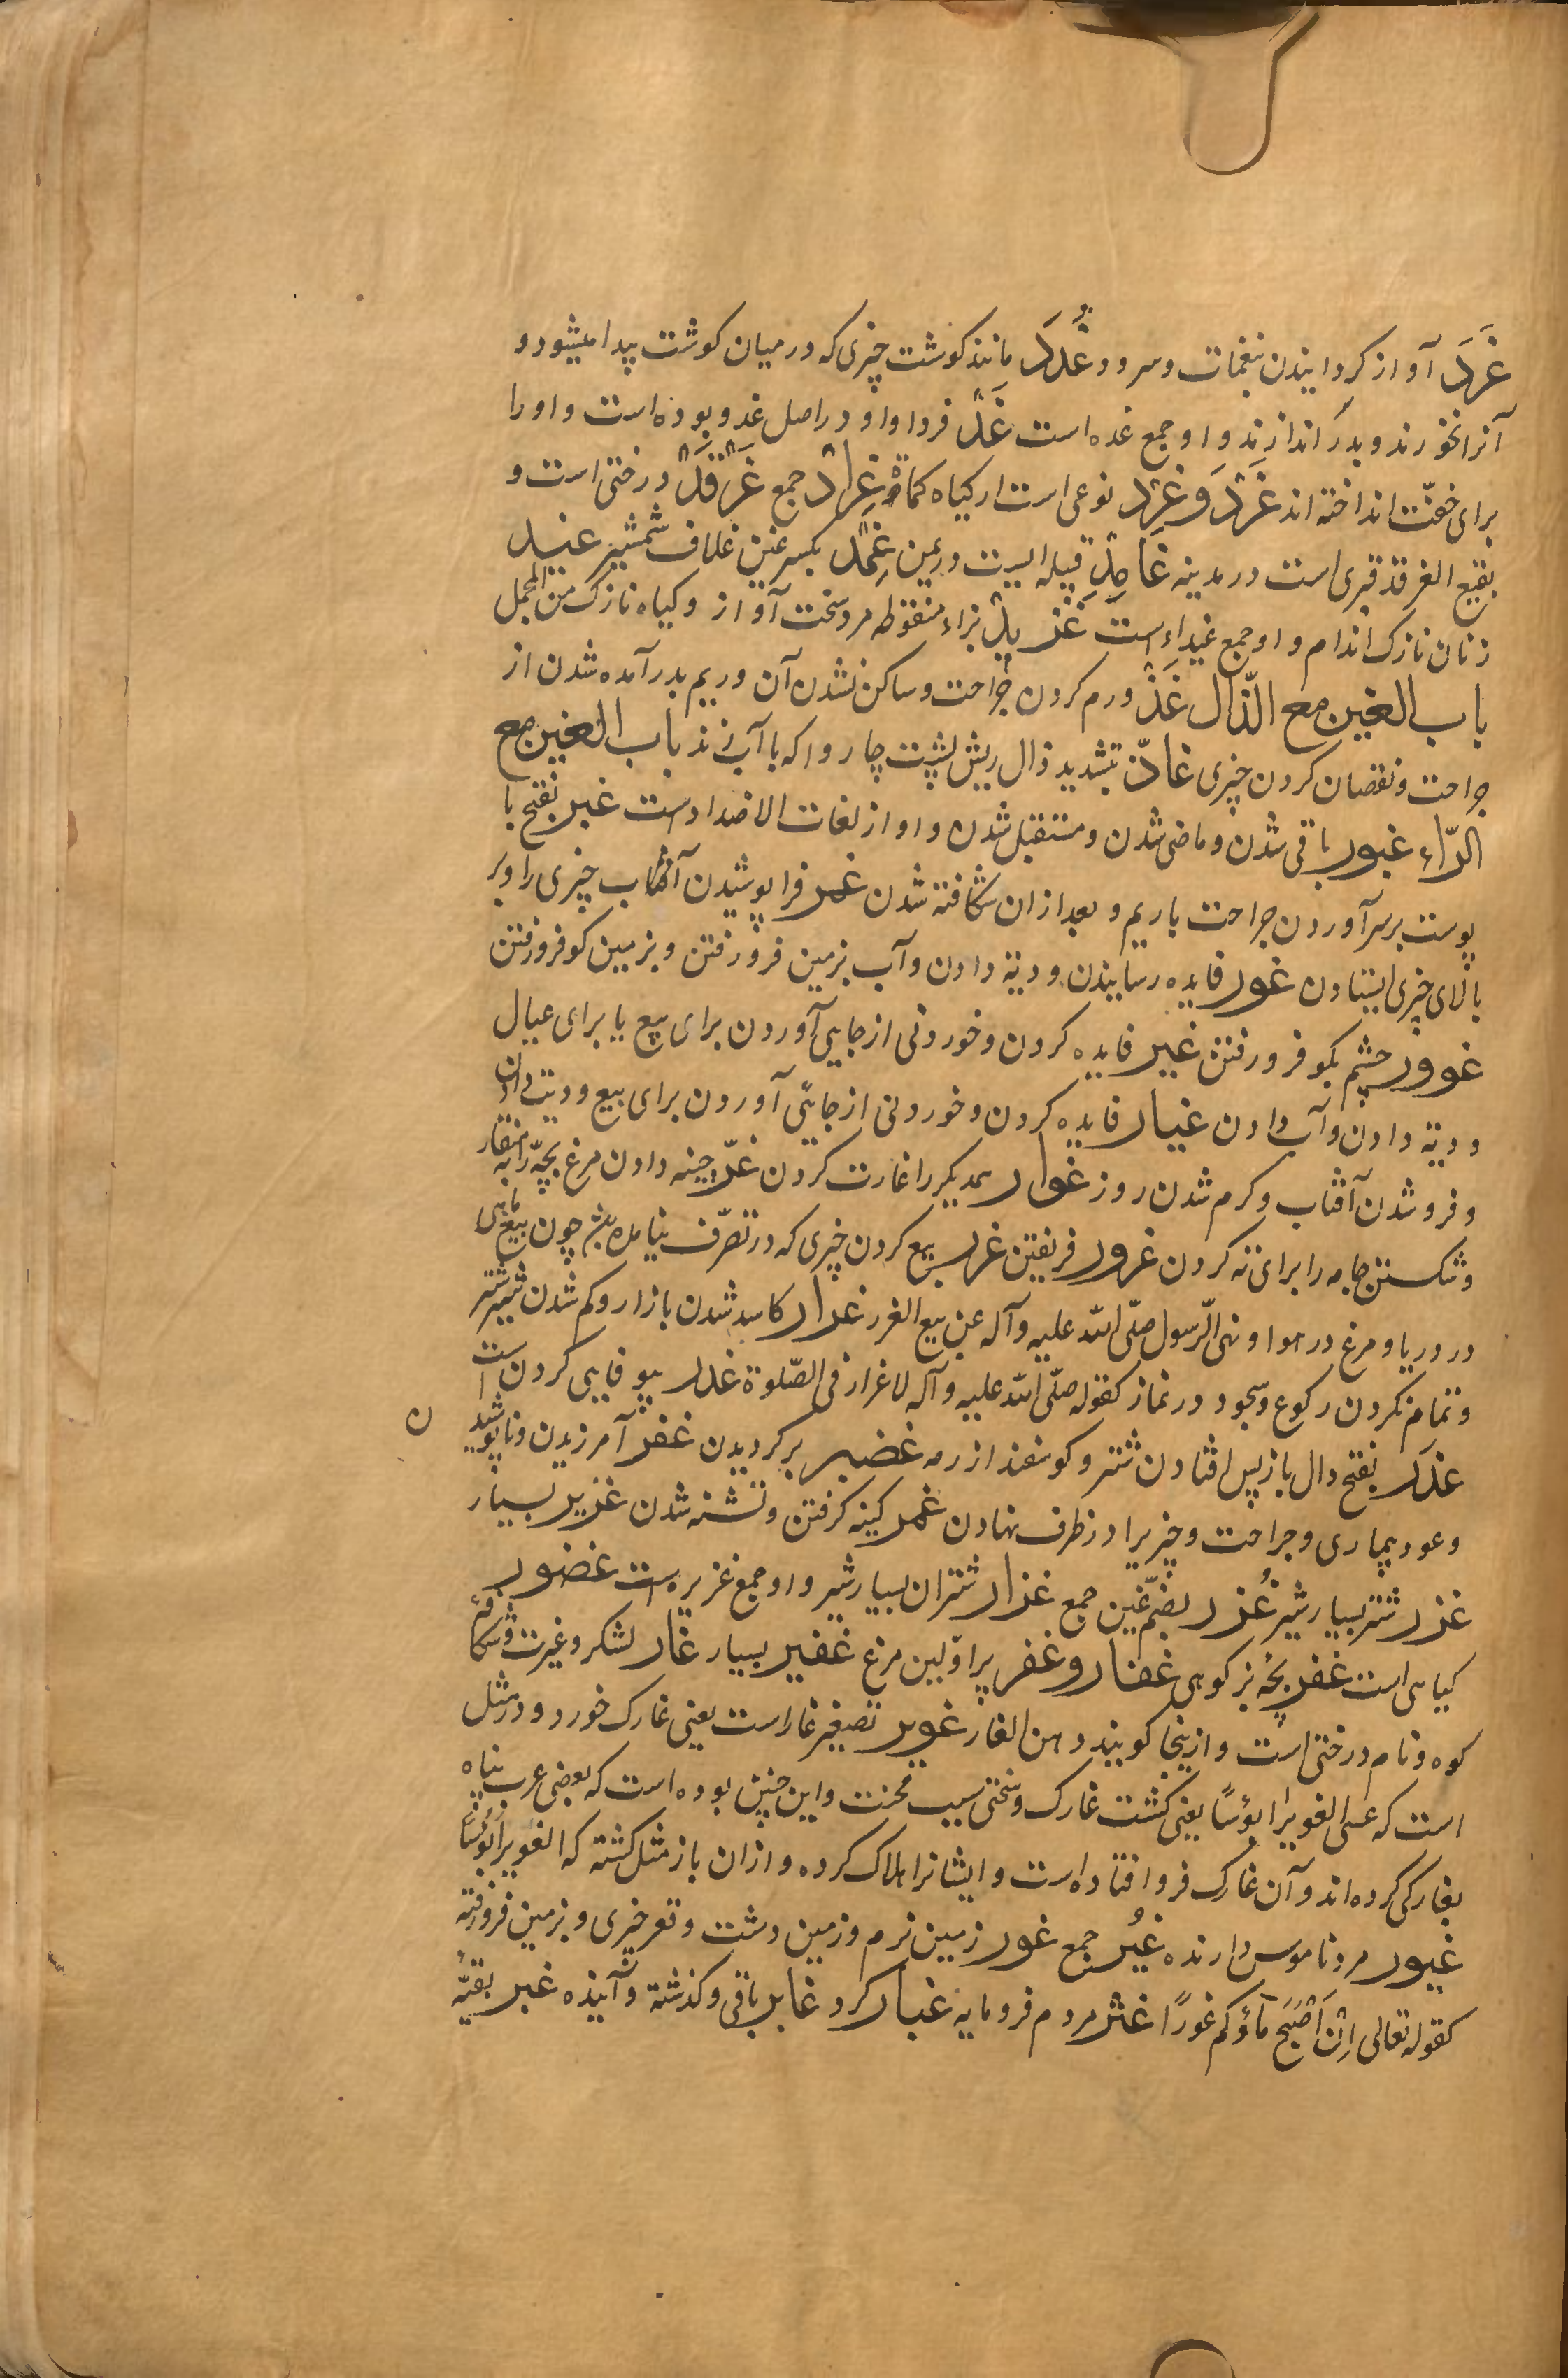 غَرَد آواز کردانیدن بنغمات و سرود غُدَد مانند کوشت چیزی که درمیان کوشت پیدا میشود و
آنرا نخورند و بدر اندازند و او جمع غده است غَدٌ فردا و او دراصل غدو بوده است و او را
برای خفّت انداخته اند غَرْد وَ غِرْد نوعی است از کیاه کماة غِرادٌ جمع غَرْقَدٌ درختی است و
بقیع الغرقد قبری است در مدینه غامِدٌ قبیله ایست در یمن غِمْدٌ بکسر غین غلاف شمشیر غید
زنان نازک اندام و او جمع غیداء است غَزْیدٌ بزاء منقوطه مرد سخت آواز و کیاه نازک من المجمل
باب الغین مع الذّال غَذٌ ورم کردن جراحت و ساکن نشدن آن و ریم بدر آمده شدن از
جراحت و نقصان کردن چیزی غاذّ بتشدید ذال ریش پشت چاروا که با آب زند باب الغین مع
الرّاء غبور باقی شدن و ماضی شدن و مستقبل شدن و او از لغات الاضداد است غبر بفتح با
پوست برسر آوردن جراحت با ریم و بعد ازان شکافته شدن غمر فرا پوشیدن آفتاب چیزی را و بر
بالای چیزی ایستادن غور فایده رسانیدن و دیة دادن و آب بزمین فرو رفتن و بزمین کو فرو رفتن
غوور چشم بکو فرو رفتن غیر فایده کردن و خوردنی از جایی آوردن برای بیع یا برای عیال
و دیة دادن و آب دادن غیار فایده کردن و خوردنی از جایی آوردن برای بیع و دیت دادن
و فرو شدن آفتاب و کرم شدن روز غوار همدیکر را غارت کردن غرّ چینه دادن مرغ بچّه را بمنقار
و شکستن جامه را برای ته کردن غرور فریفتن غرر بیع کردن چیزی که در تصرّف نیامده باشد چون بیع ماهی
در دریا و مرغ در هوا و نهی الرّسول صلّی الله علیه و آله عن بیع الغرر غرار کاسد شدن بازار و کم شدن شیر شتر
و تمام نکردن رکوع و سجود در نماز کقوله صلّی الله علیه و آله لا غرار فی الصّلوة غدر بیوفایی کردن است
غدَر بفتح دال باز پس افتادن شتر و کوسفند از رمه غضیر برکردیدن غفر آمرزیدن و نا پوشیدن
و عود بیماری و جراحت و چیزیرا در ظرف نهادن غمر کینه کرفتن و تشنه شدن غزیر بسیار
غزر شتر بسیار شیر غُزر بضمّ غین جمع غزار شتران بسیار شیر و او جمع غزیره است غضور
کیاهی است غفر بچّه بز کوهی غفار و غفر پر اوّلین مرغ غفیر بسیار غار لشکر و غیرت و شکاف
کوه و نام درختی است و ازینجا کویند دهن الغار غویر تصغیر غار است یعنی غارک خورد و در مثل
است که عسی الغویر ابؤسًا یعنی کشت غارک و سختی سبب محنت و این چنین بوده است که بعضی عرب پناه
بغارکی کرده اند و آن غارک فرو افتاده است و ایشانرا هلاک کرده و ازان باز مثل کشته که الغویر ابؤسًا
غیور مرد ناموس دارنده غیُر جمع غور زمین نرم و زمین دشت و قعر چیزی و بزمین فرو رفته
کقوله تعالی اِنْ اَصْبَحَ مَاؤکم غورًا غثر مردم فرومایه غبار کرد غابر باقی و کذشته و آینده غبر بقیّه